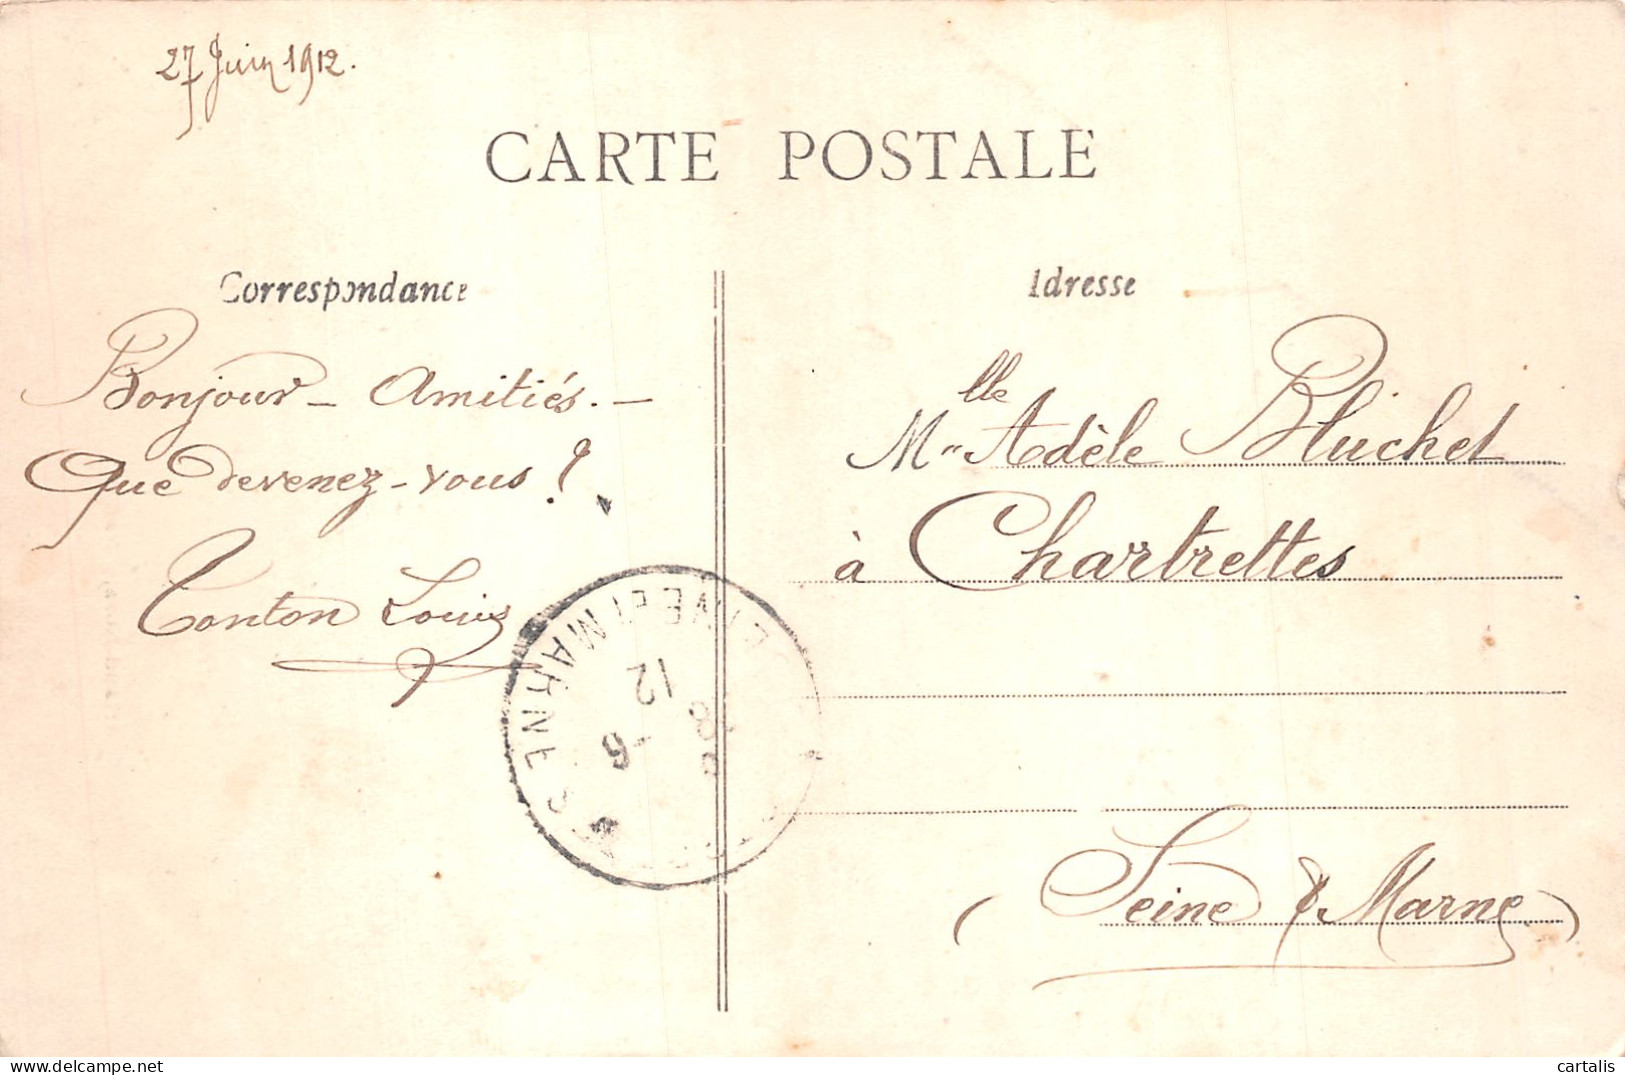 27 Juin 1912.
CARTE POSTALE
Correspondance
Bonjour - Amitiés. -
Que devenez-vous ?
Tonton Louis
Adresse
Mlle Adèle Bluchet
à Chartrettes
(Seine & Marne)
SEINE ET MARNE
12
6
cartalis